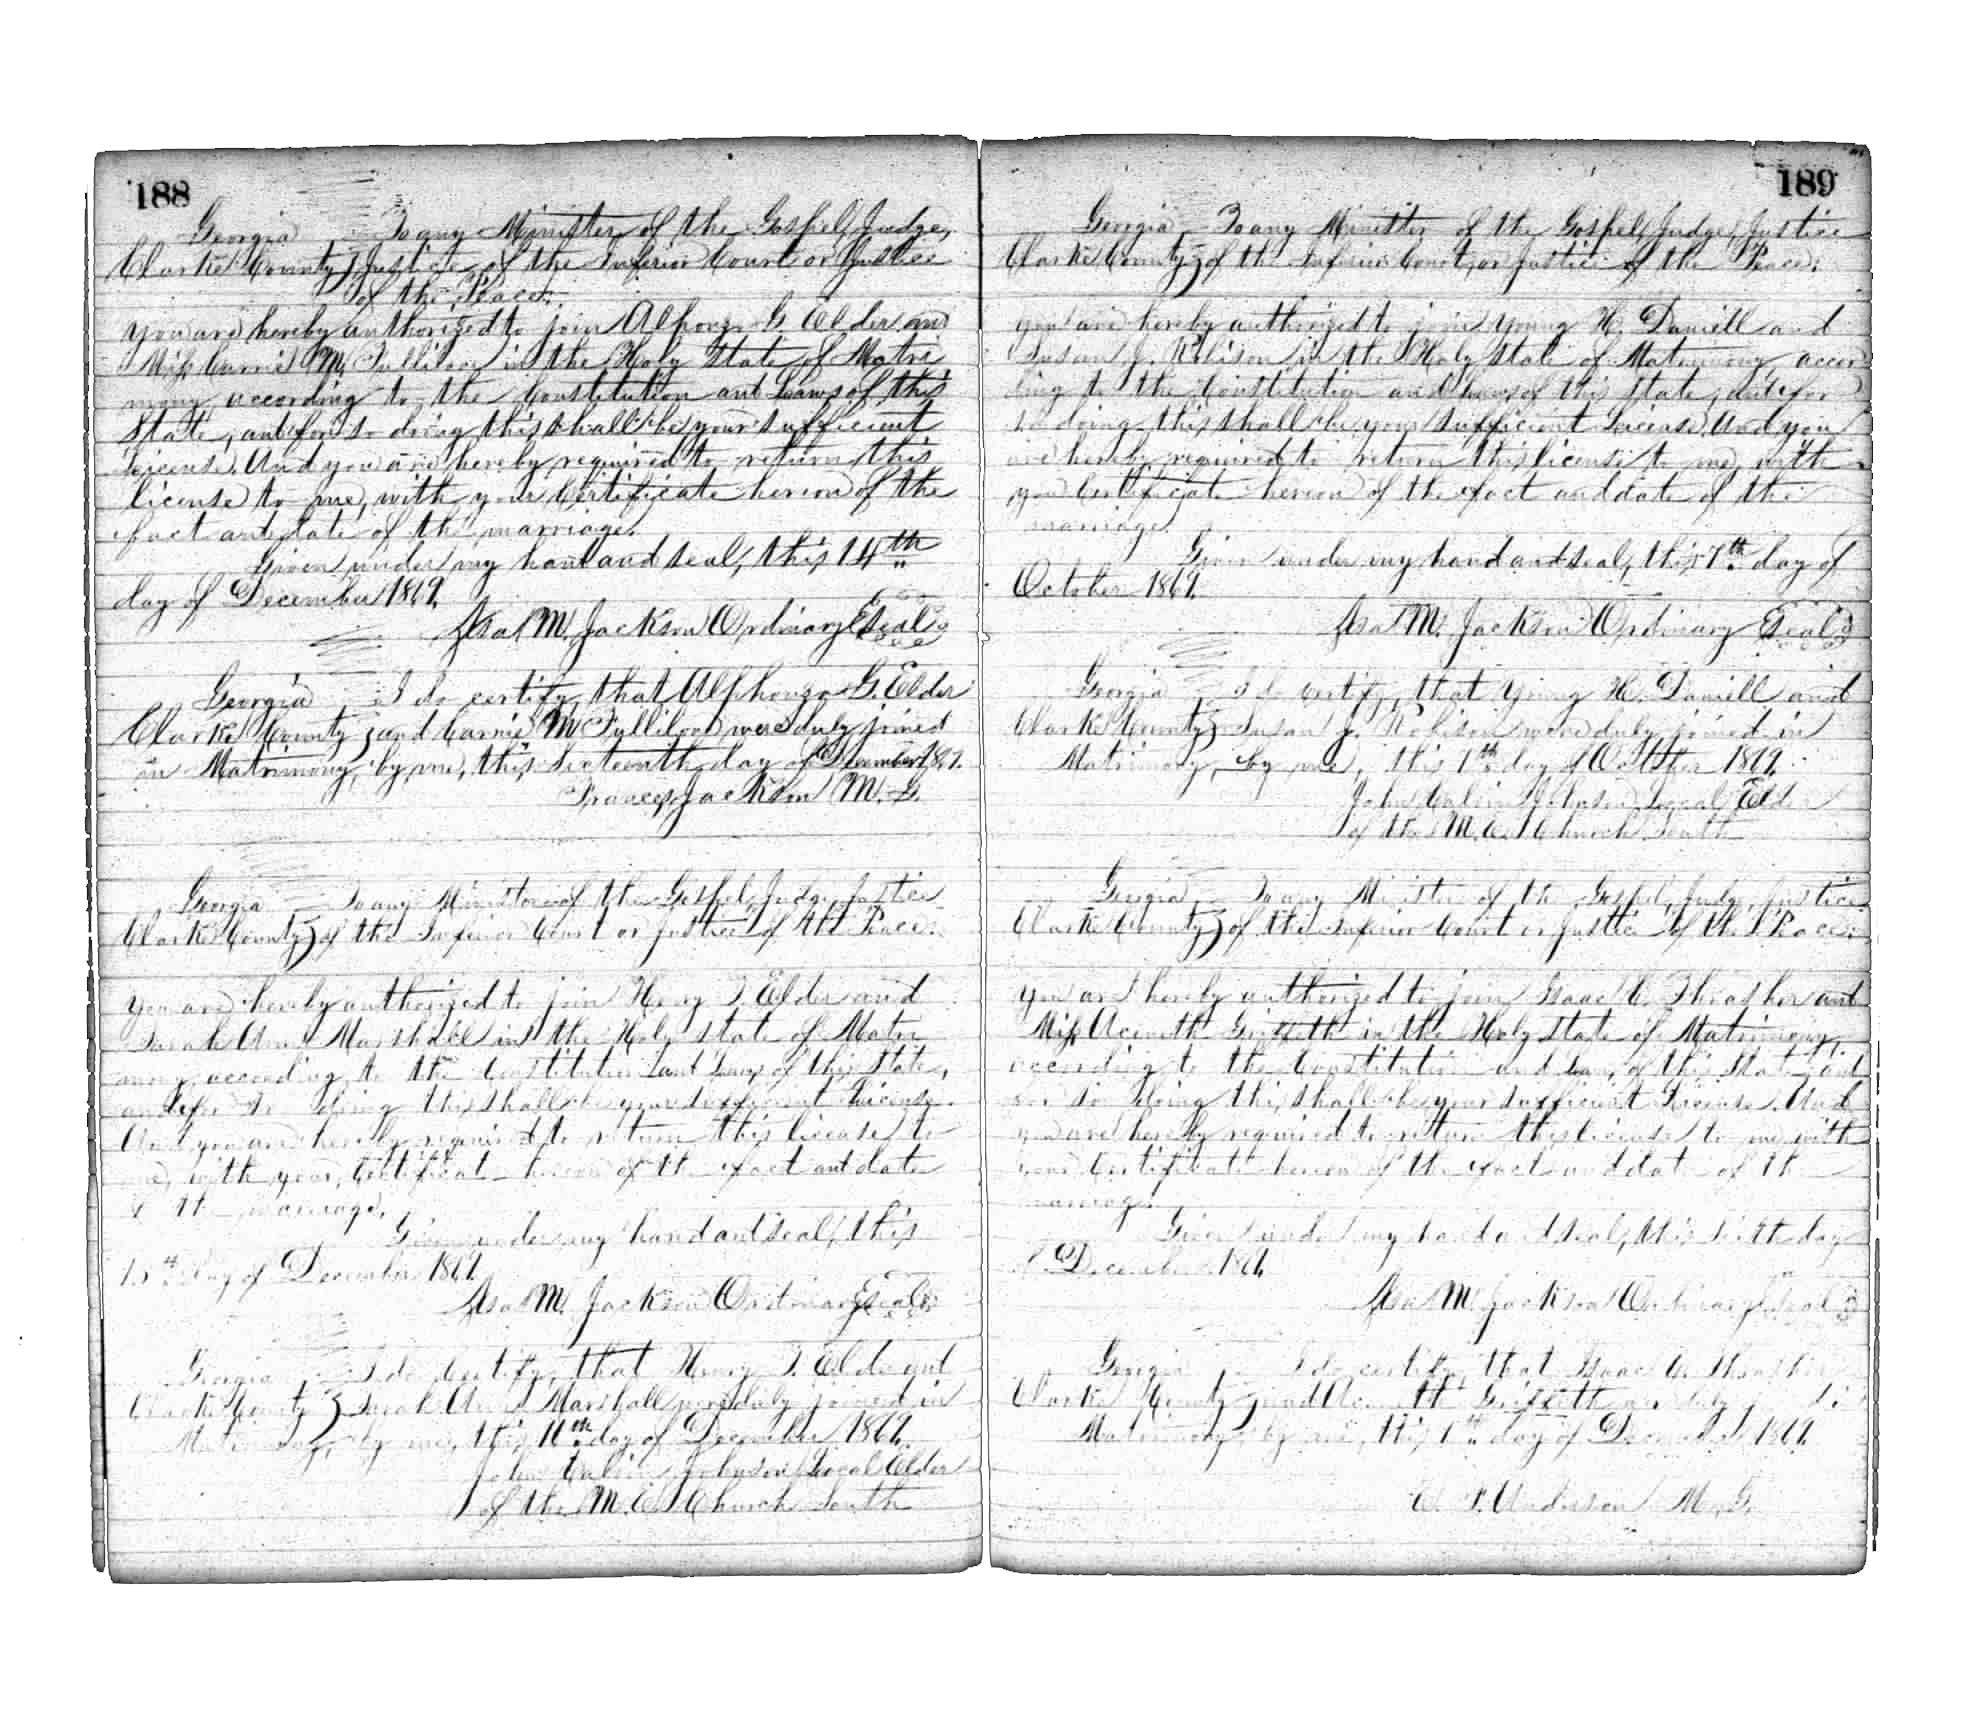 188
Georgia To any Minister of the Gospel, Judge,
Clarke County } Justice of the Inferior Court or Justice
of the Peace:
you are hereby authorized to join Alphonzo G. Elder and
Miss Carrie M. Fullilove in the Holy State of Matri
mony, according to the Constitution and Laws of this
State; and for so doing this shall be your sufficient
License. And you are hereby required to return this
license to me, with your Certificate hereon of the
fact and date of the marriage.
Given under my hand and seal, this 14th
day of December
Asa M. Jackson Ordinary Seal
Georgia I do certify, that Alphonzo G. Elder
Clarke County } and Carrie M Fullilove were duly joined
in Matrimony, by me, this Sixteenth day of December
Jackson M. G.
Georgia To any Minister of the Gospel, Judge, Justice
Clarke County } of the Inferior Court or Justice of the Peace:
you are hereby authorized to join Henry T. Elder and
Sarah Ann Marshall in the Holy state of Matri
mony, according to the Constitution and Laws of this State,
and for so doing this shall be your sufficient License.
And you are hereby required to return this license to
me, with your Certificate hereon of the fact and date
of the marriage.
Given under my hand and seal, this
15th day of December
Asa M. Jackson Ordinary Seal
Georgia I do Certify, that Henry T. Elder and
Clarke County } Sarah Ann Marshall were duly joined in
Matrimony, by me, this day of December
John Calvin Johnson Local Elder
of the M. E. Church South
189
Georgia To any Minister of the Gospel, Judge, Justice
Clarke County } of the Inferior Court, or Justice of the Peace:
you are hereby authorized to join Young H. Daniell and
Susan J. Robison in the Holy state of Matrimony, accor
ding to the Constitution and Laws of this State; and for
so doing this shall be your sufficient License. And you
are hereby required to return this license to me, with
your Certificate hereon of the fact and date of the
marriage.
Given under my hand and seal, this 7th day of
October
Asa M. Jackson Ordinary Seal
Georgia I do certify, that Young H. Daniell and
Clarke County } Susan J. Robison were duly joined in
Matrimony, by me, this day of October
John Calvin Johnson Local Elder
of the M. E. Church South
Georgia To any Minister of the Gospel, Judge, Justice
Clarke County } of the Inferior Court or Justice of the Peace:
you are hereby authorized to join Isaac C. Thrasher and
Miss Aceneth Griffeth in the Holy State of Matrimony,
according to the Constitution and Laws of this State; and
for so doing this shall be your sufficient License. And
you are hereby required to return this license to me, with
your Certificate hereon of the fact and date of the
marriage.
Given under my hand and seal, this day
of December
Asa M. Jackson Ordinary Seal
Georgia I do certify, that Isaac C. Thrasher
Clarke County } and Aceneth Griffeth were duly joined in
Matrimony, by me, this day of December
Anderson M. G.